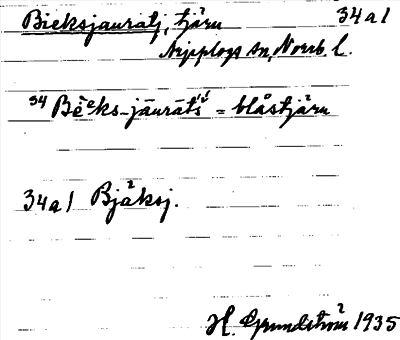 Bieksjauratj, tjärn 34a1
Arjeplogs sn, Norrb. l.
34 Bèeks-jāurāts' = blåstjärn
34a1 Bjäksj.
H. Grundström 1935